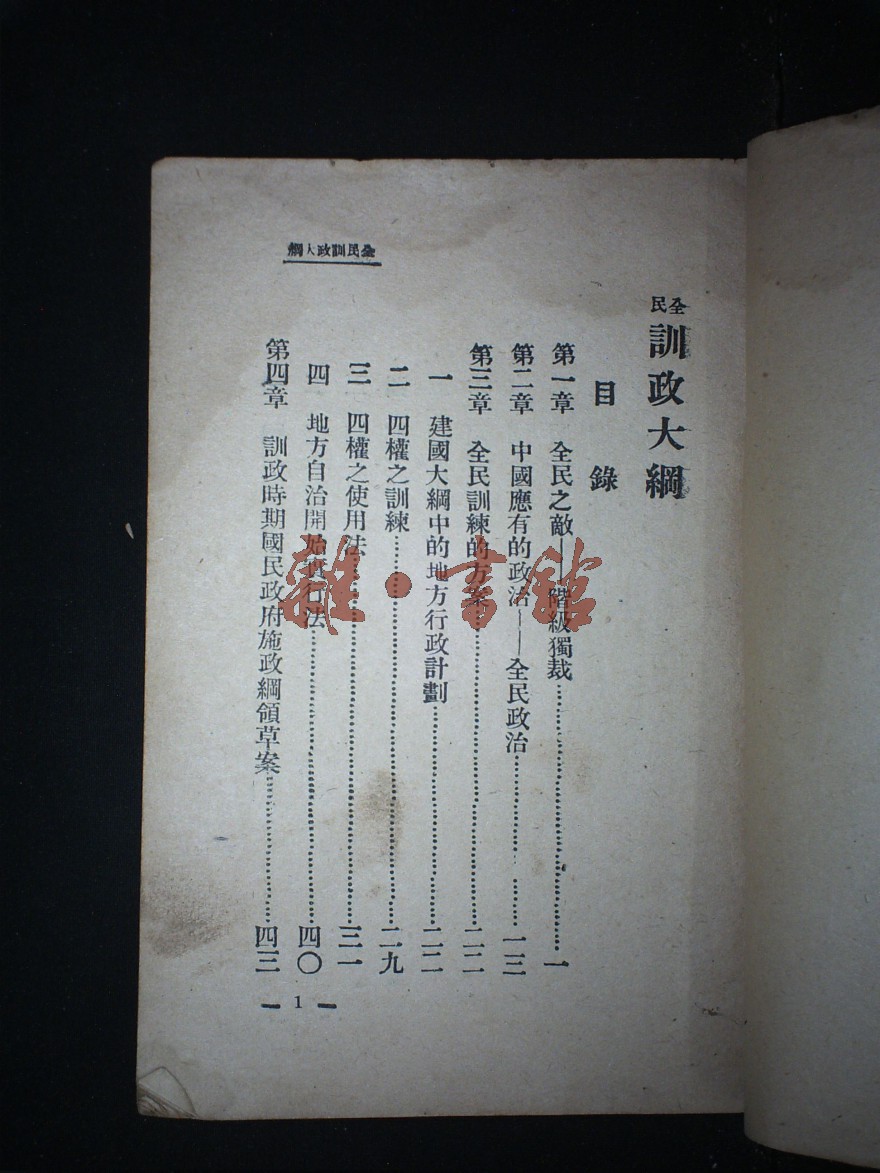 全民訓政大綱
全民訓政大綱
目錄
第一章 全民之敵——階級獨裁……一
第二章 中國應有的政治——全民政治……一三
第三章 全民訓練的方案……二二
一 建國大綱中的地方行政計劃……二二
二 四權之訓練……二九
三 四權之使用法……三一
四 地方自治開始實行法……四〇
第四章 訓政時期國民政府施政綱領草案……四三
— 1 —
雜·書館